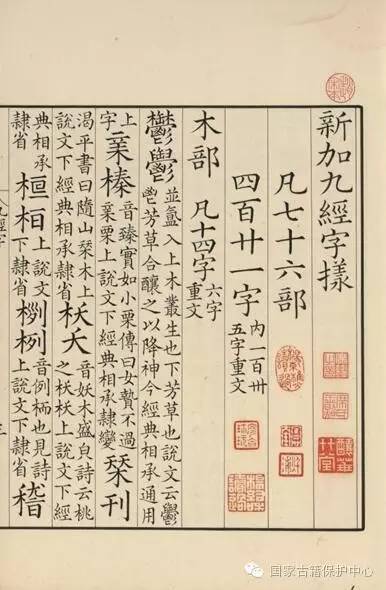 新加九經字樣
凡七十六部
四百廿一字
內一百卅
五字重文
木部 凡十四字
六字
重文
並氳入上木叢生也下芳草也說文云鬱
鬯芳草合釀之以降神今經典相承通用
上
字
榛
音臻實如小栗傳曰女贄不過
栗上說文下經典相承隸變
栞刊
渴平書曰隨山栞木上
說文下經典相承隸省
枖夭
音妖木盛皃詩云桃
之枖枖上說文下經
典相承
隸省
桓
上說文
下隸省
栵
音例栭也見詩
上說文下隸省
稽
九經字
三
国家古籍保护中心